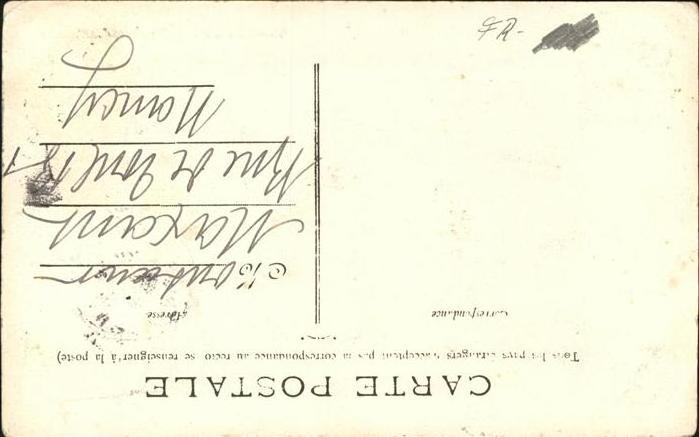 CARTE POSTALE
Tous les pays étrangers n'acceptent pas la correspondance au recto se renseigner à la poste)
Correspondance
Adresse
Monsieur
Maxant
Rue de Toul
Nancy
FR-